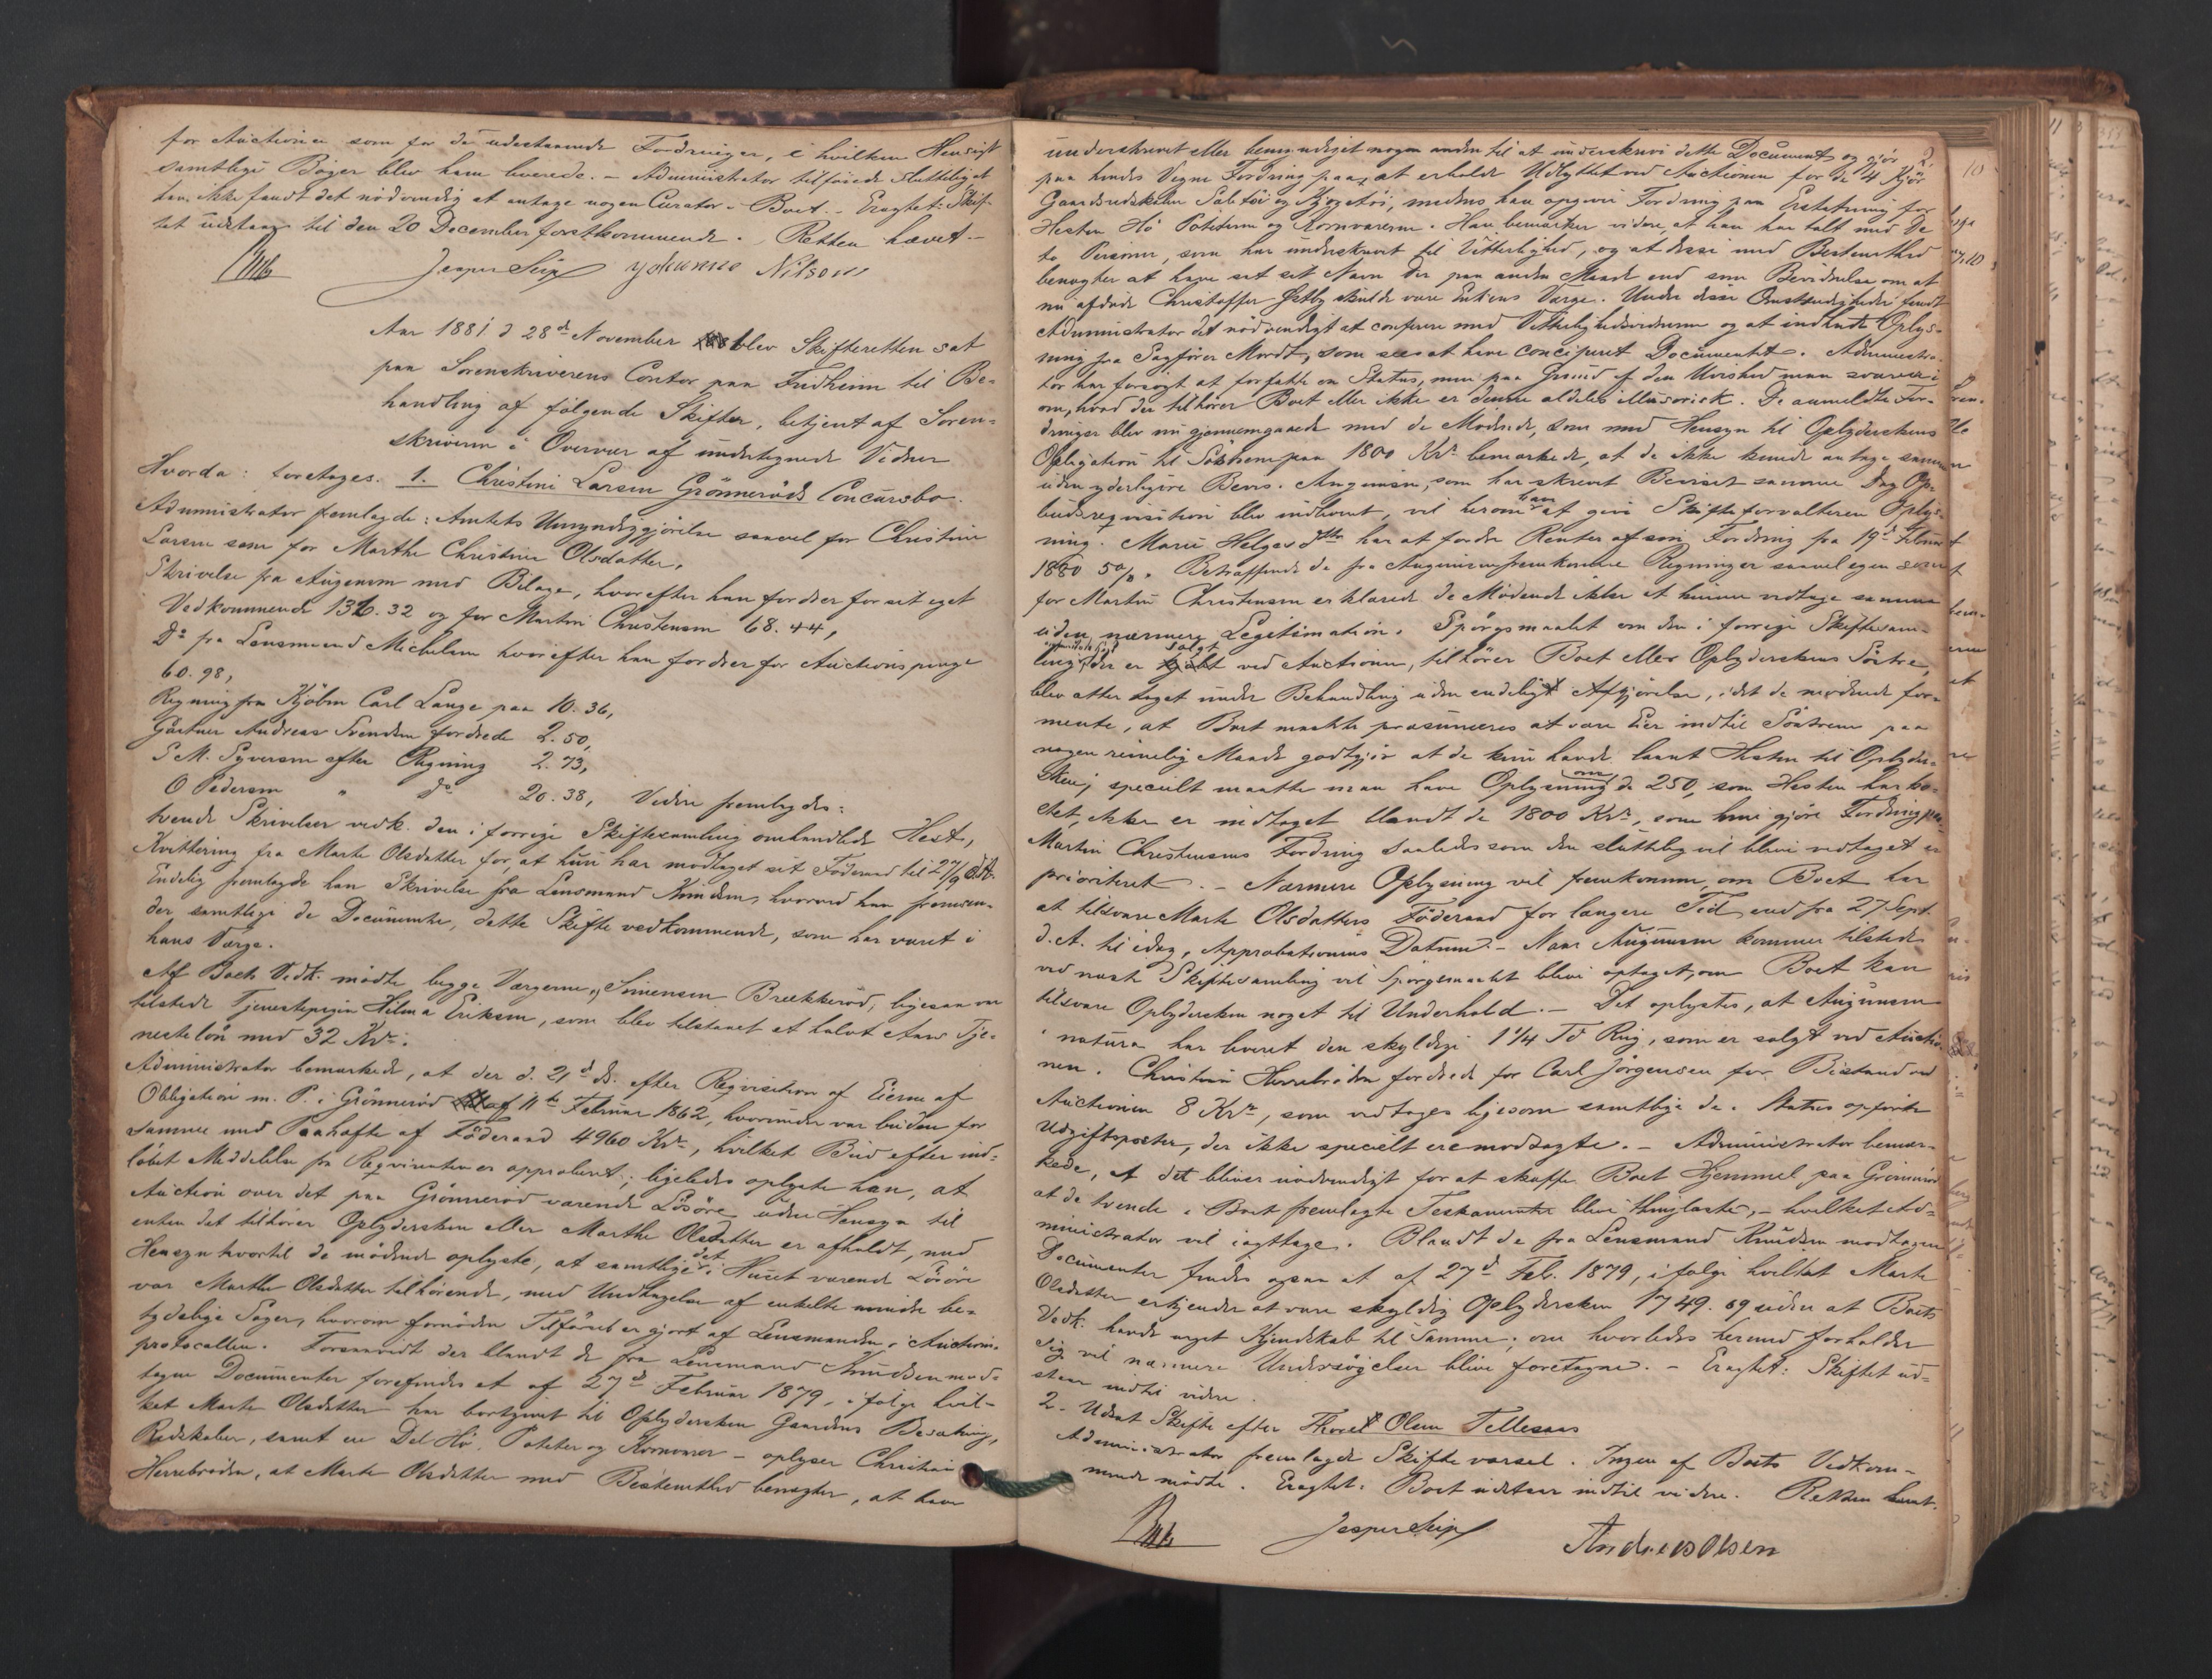 for Auctionen som for de udestaaende Fordringer, i hvilken Hensigt
samtlige Bøger blev ham leverede. - Administrator tilføiede sluttelig at
han ikke fandt det nødvendig at antage nogen Curator i Boet. - Eragtet: Skif-
tet udstaar til den 20 December førstkommende. Retten hævet. -
Jesper Seip Johannes Nilson
Aar 1881 d 28de November blev Skifteretten sat
paa Sorenskriverens Contor paa Fridheim til Be-
handling af følgende Skifter, betjent af Soren-
skriveren i Overvær af undertegnede Vidner
Hvorda: foretoges. 1. Christine Larsen Grønnerøds Concursbo.
Administrator fremlagde: Amtets Umyndiggjørelse saavel for Christine
Larsen som for Marthe Christine Olsdatter,
Skrivelse fra Augensen med Bilage, hvorefter han fordrer for sit eget
Vedkommende 136.32 og for Martin Christensen 68.44,
Do fra Lensmand Michelsen hvorefter han fordrer for Auctionspenge
60.98,
Regning fra Kjøbm Carl Lange paa 10.36,
Gartner Andreas Svendsen fordrede 2.50,
S M. Syversen efter Regning 2.73,
O Pedersen " do 20.38, Videre fremlagdes:
tvende Skrivelser vedk. den i forrige Skiftesamling omhandlede Hest,
Kvittering fra Marte Olsdatter for, at hun har modtaget sit Föderaad til 27/9 d.A.
Endelig fremlagde han Skrivelse fra Lensmand Knudsen, hvorved han fremsen-
der samtlige de Documenter, dette Skifte vedkommende, som har været i
hans Værge.
Af Boets Vedk. mødte begge Værgerne, Simensen Brækkerød, ligesaa var
tilstede Tjenestepigen Helma Eriksen, som blev tilstaaet et halvt Aars Tje-
nesteløn med 32 Kr.
Administrator bemærkede, at der d. 21de ds. efter Reqvisition af Eierne af
Obligation m. P. i Grønnerød af 11te Februar 1862, hvorunder var buden for
samme med Paahefte af Föderaad 4960 Kr., hvilket Bud efter ind-
løbet Meddelelse fra Reqvirenten er approberet; ligeledes oplyste han, at
Auction over det paa Grønnerød værende Løsøre uden Hensyn til
enten det tilhører Oplydersken eller Marthe Olsdatter er afholdt, med
Hensyn hvortil de mødende oplyste, at samtlige det i Huset værende Løsøre
var Marthe Olsdatter tilhørende, med Undtagelse af enkelte mindre be-
tydelige Sager, hvorom fornøden Tilførsel er gjort af Lensmanden i Auctions-
protocollen. Forsaavidt der blandt de fra Lensmand Knudsen mod-
tagne Documenter forefindes et af 27de Februar 1879, i følge hvil-
ket Marte Olsdatter har bortgivet til Oplydersken Gaardens Besætning,
Redskaber, samt en Del Hø, Poteter og Kornvarer - oplyser Christian
Herrebrøden, at Marte Olsdatter med Bestemthed benægter, at have
underskrevet eller bemyndiget nogen anden til at underskrive dette Document og gjør
paa hendes Vegne Fordring paa, at erholde Udbyttet ved Auctionen for de 4 Kjør
Gaardsredskaber Seletøi og Kjøretøi, medens han opgiver Fordring paa Erstatning for
Hesten Hø Poteterne og Kornvarerne. Han bemærker videre, at han har talt med De
to Personer, som har underskrevet til Vitterlighed, og at disse med Bestemthed
benægter at have sat sit Navn der paa anden Maade end som Bevidnelse om at
nu afdøde Christoffer Østby skulde være Enkens Værge. Under disse Omstændigheder fandt
Administrator det nødvendigt at conferere med Vitterlighedsvidnerne og at indhente Oplys-
ning fra Sagfører Mordt, som sees at have conciperet Documentet. Administra-
tor har forsøgt at forfatte en Status, men paa Grund af den Uvished man svæver i
om, hvad der tilhører Boet eller ikke er denne aldeles illusorisk. De anmeldte For-
dringer blev nu gjennemgaaede med de Mødende, som med Hensyn til Oplyderskens
Obligation til Söstrene paa 1800 Kr. bemærkede, at de ikke kunde antage samme
uden yderligere Bevis. Augensen, som har skrevet Beviset samme Dag Op-
budsreqvisition blev indleveret, vil herom ham at give Skifteforvalteren Oplys-
ning. Marie Helgesdtr har at fordre Renter af sin Fordring fra 19de Februar
1880 5%. Betræffende de fra Augensen fremkomne Regninger saavel egen som
for Martin Christensen erklærede de Mødende ikke at kunne vedtage samme
uden nærmere Legitimation. Spørgsmaalet om den i forrige Skiftesam-
ling omhandlede Hest, der er solgt ved Auctionen, tilhører Boet eller Oplyderskens Søstre,
blev atter taget under Behandling uden endelig Afgjørelse, idet de mødende for-
mente, at Boet maatte præsumeres at være Eier indtil Söstrene paa
nogen rimelig Maade godtgjør at de kun havde laant Hesten til Oplyder-
sken; specielt maatte man have Oplysning om de 250, som Hesten har ko-
stet, ikke er indtaget blandt de 1800 Kr., som hun gjøre Fordring paa.
Martin Christensens Fordring saaledes som den sluttelig vil blive vedtaget er
prioriteret. - Nærmere Oplysning vil fremkomme, om Boet har
at tilsvare Marte Olsdatters Föderaad for længere Tid end fra 27 Sept.
d.A. til idag, Approbationens Datum. - Naar Augensen kommer tilstede
ved næste Skiftesamling vil Spørgsmaalet blive optaget, om Boet kan
tilsvare Oplydersken noget til Underhold. - Det oplystes, at Augensen
i natura har leveret den skyldige 1 1/4 Td Rug, som er solgt ved Auctio-
nen. Christian Herrebrøden fordrede for Carl Jørgensen for Bistand ved
Auctionen 8 Kr., som vedtoges ligesom samtlige de i Status opførte
Udgiftsposter, der ikke specielt ere modsagte. - Administrator bemær-
kede, at det bliver nødvendigt for at skaffe Boet Hjemmel paa Grønnerød
at de tvende i Boet fremlagte Testamenter blive thinglæste, - hvilket Ad-
ministrator vil iagttage. Blandt de fra Lensmand Knudsen modtagne
Documenter findes ogsaa et af 27de Feb. 1879, i følge hvilket Marte
Olsdatter erkjender at være skyldig Oplydersken 1749.69 uden at Boets
Vedk. havde noget Kjendskab til Samme; om hvorledes hermed forholder
sig vil nærmere Undersøgelser blive foretagne. - Eragtet: Skiftet ud-
staar indtil videre.
2. Udsat Skifte efter Olsen Tellesaas
Administrator fremlagde Skiftevarsel. Ingen af Boets Vedkom-
mende mødte. Eragtet: Boet udstaar indtil videre. Retten hævet.
Jesper Seip Andreas Olsen